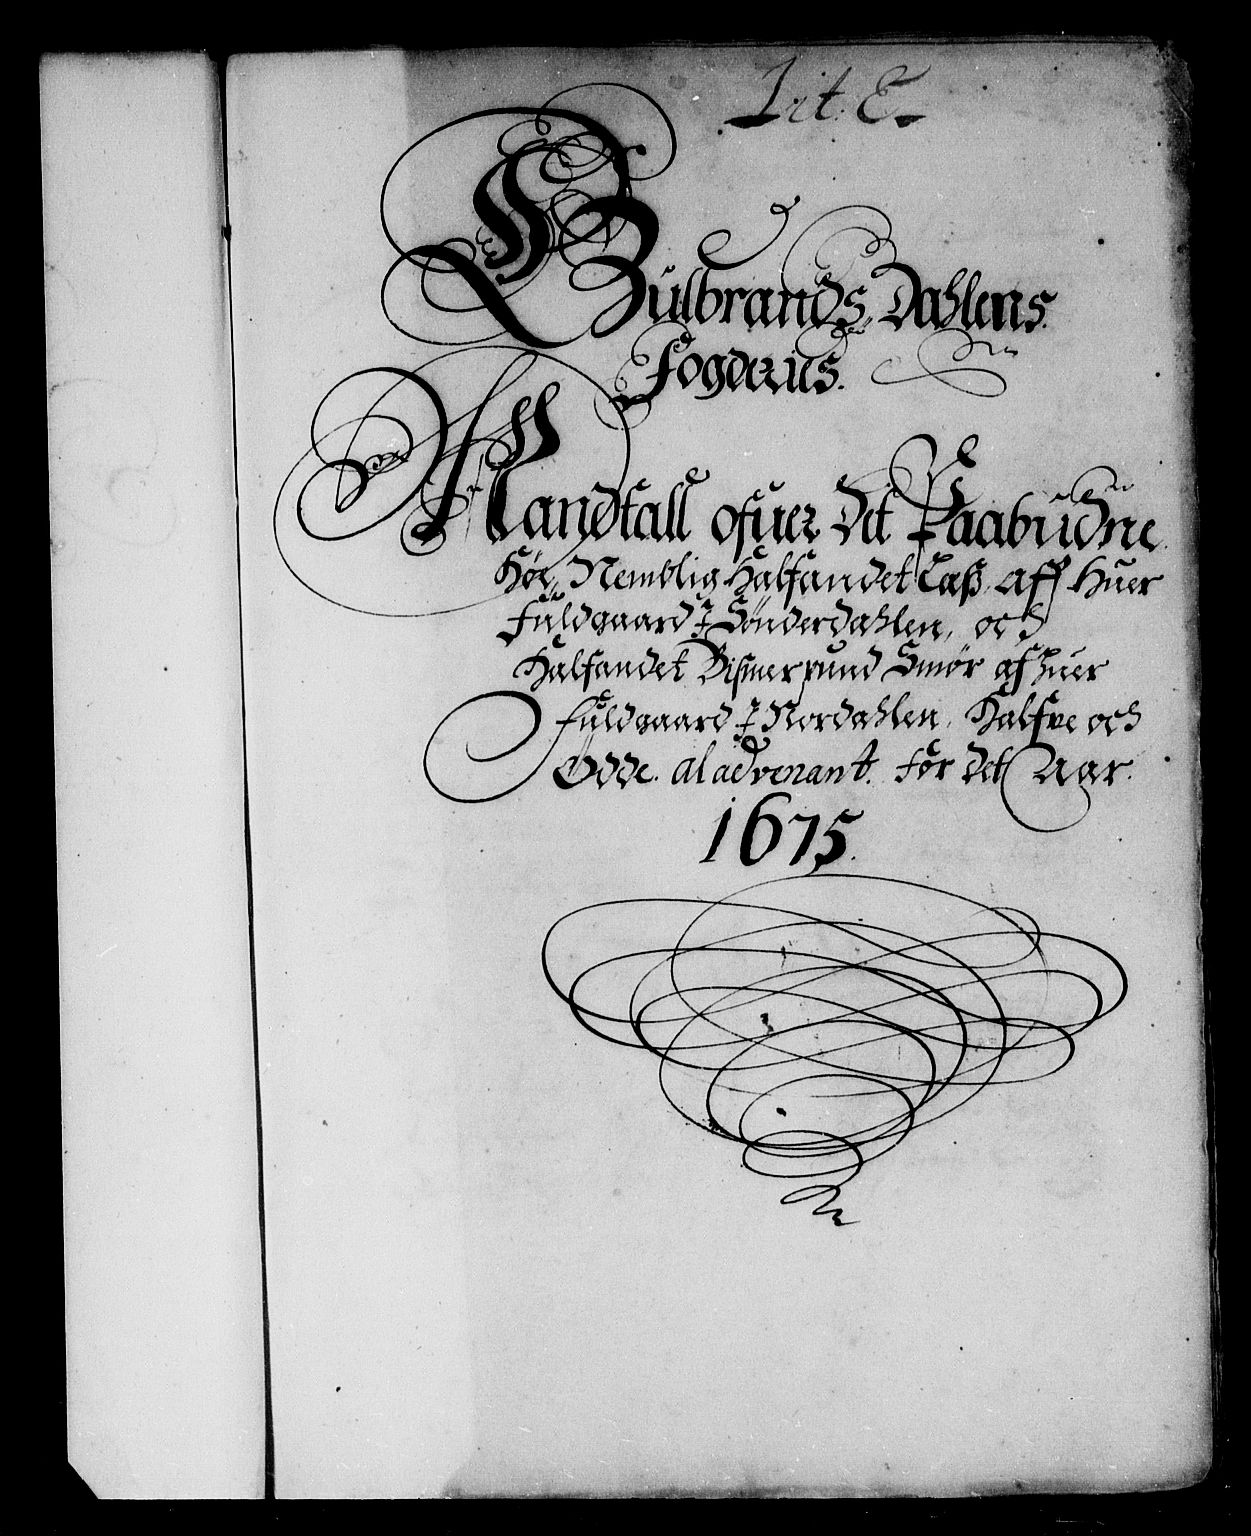 Lit. E.
Gulbrands Dahlens
Fogderies.
Mandtall ofuer det Paabudne
Høe, Nemblig Halfandet Lass, aff Huer
Fuldgaard J Sønderdahlen, och
Halfandet Bismerpund Smør af huer
fuldgaard J Nordahlen, Halfve och
Ødde. al advenant. for det Aar.
1675.